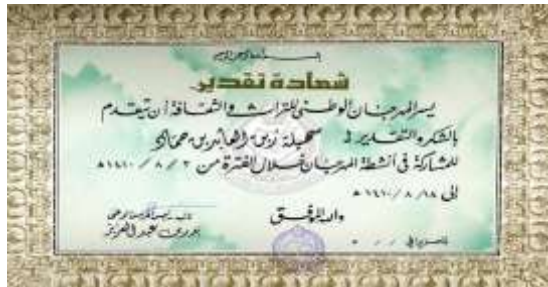 بسم الله الرحمن الرحيم
شهادة تقدير
يسر المهرجان الوطني للتراث والثقافة أن يتقدم
بالشكر والتقدير لـ سهيلة زين العابدين حماد
للمشاركة في أنشطة المهرجان خلال الفترة من ٢ / ٨ / ١٤١٠هـ
إلى ١٨ / ٨ / ١٤١٠هـ
والله الموفق
بدر بن عبد العزيز